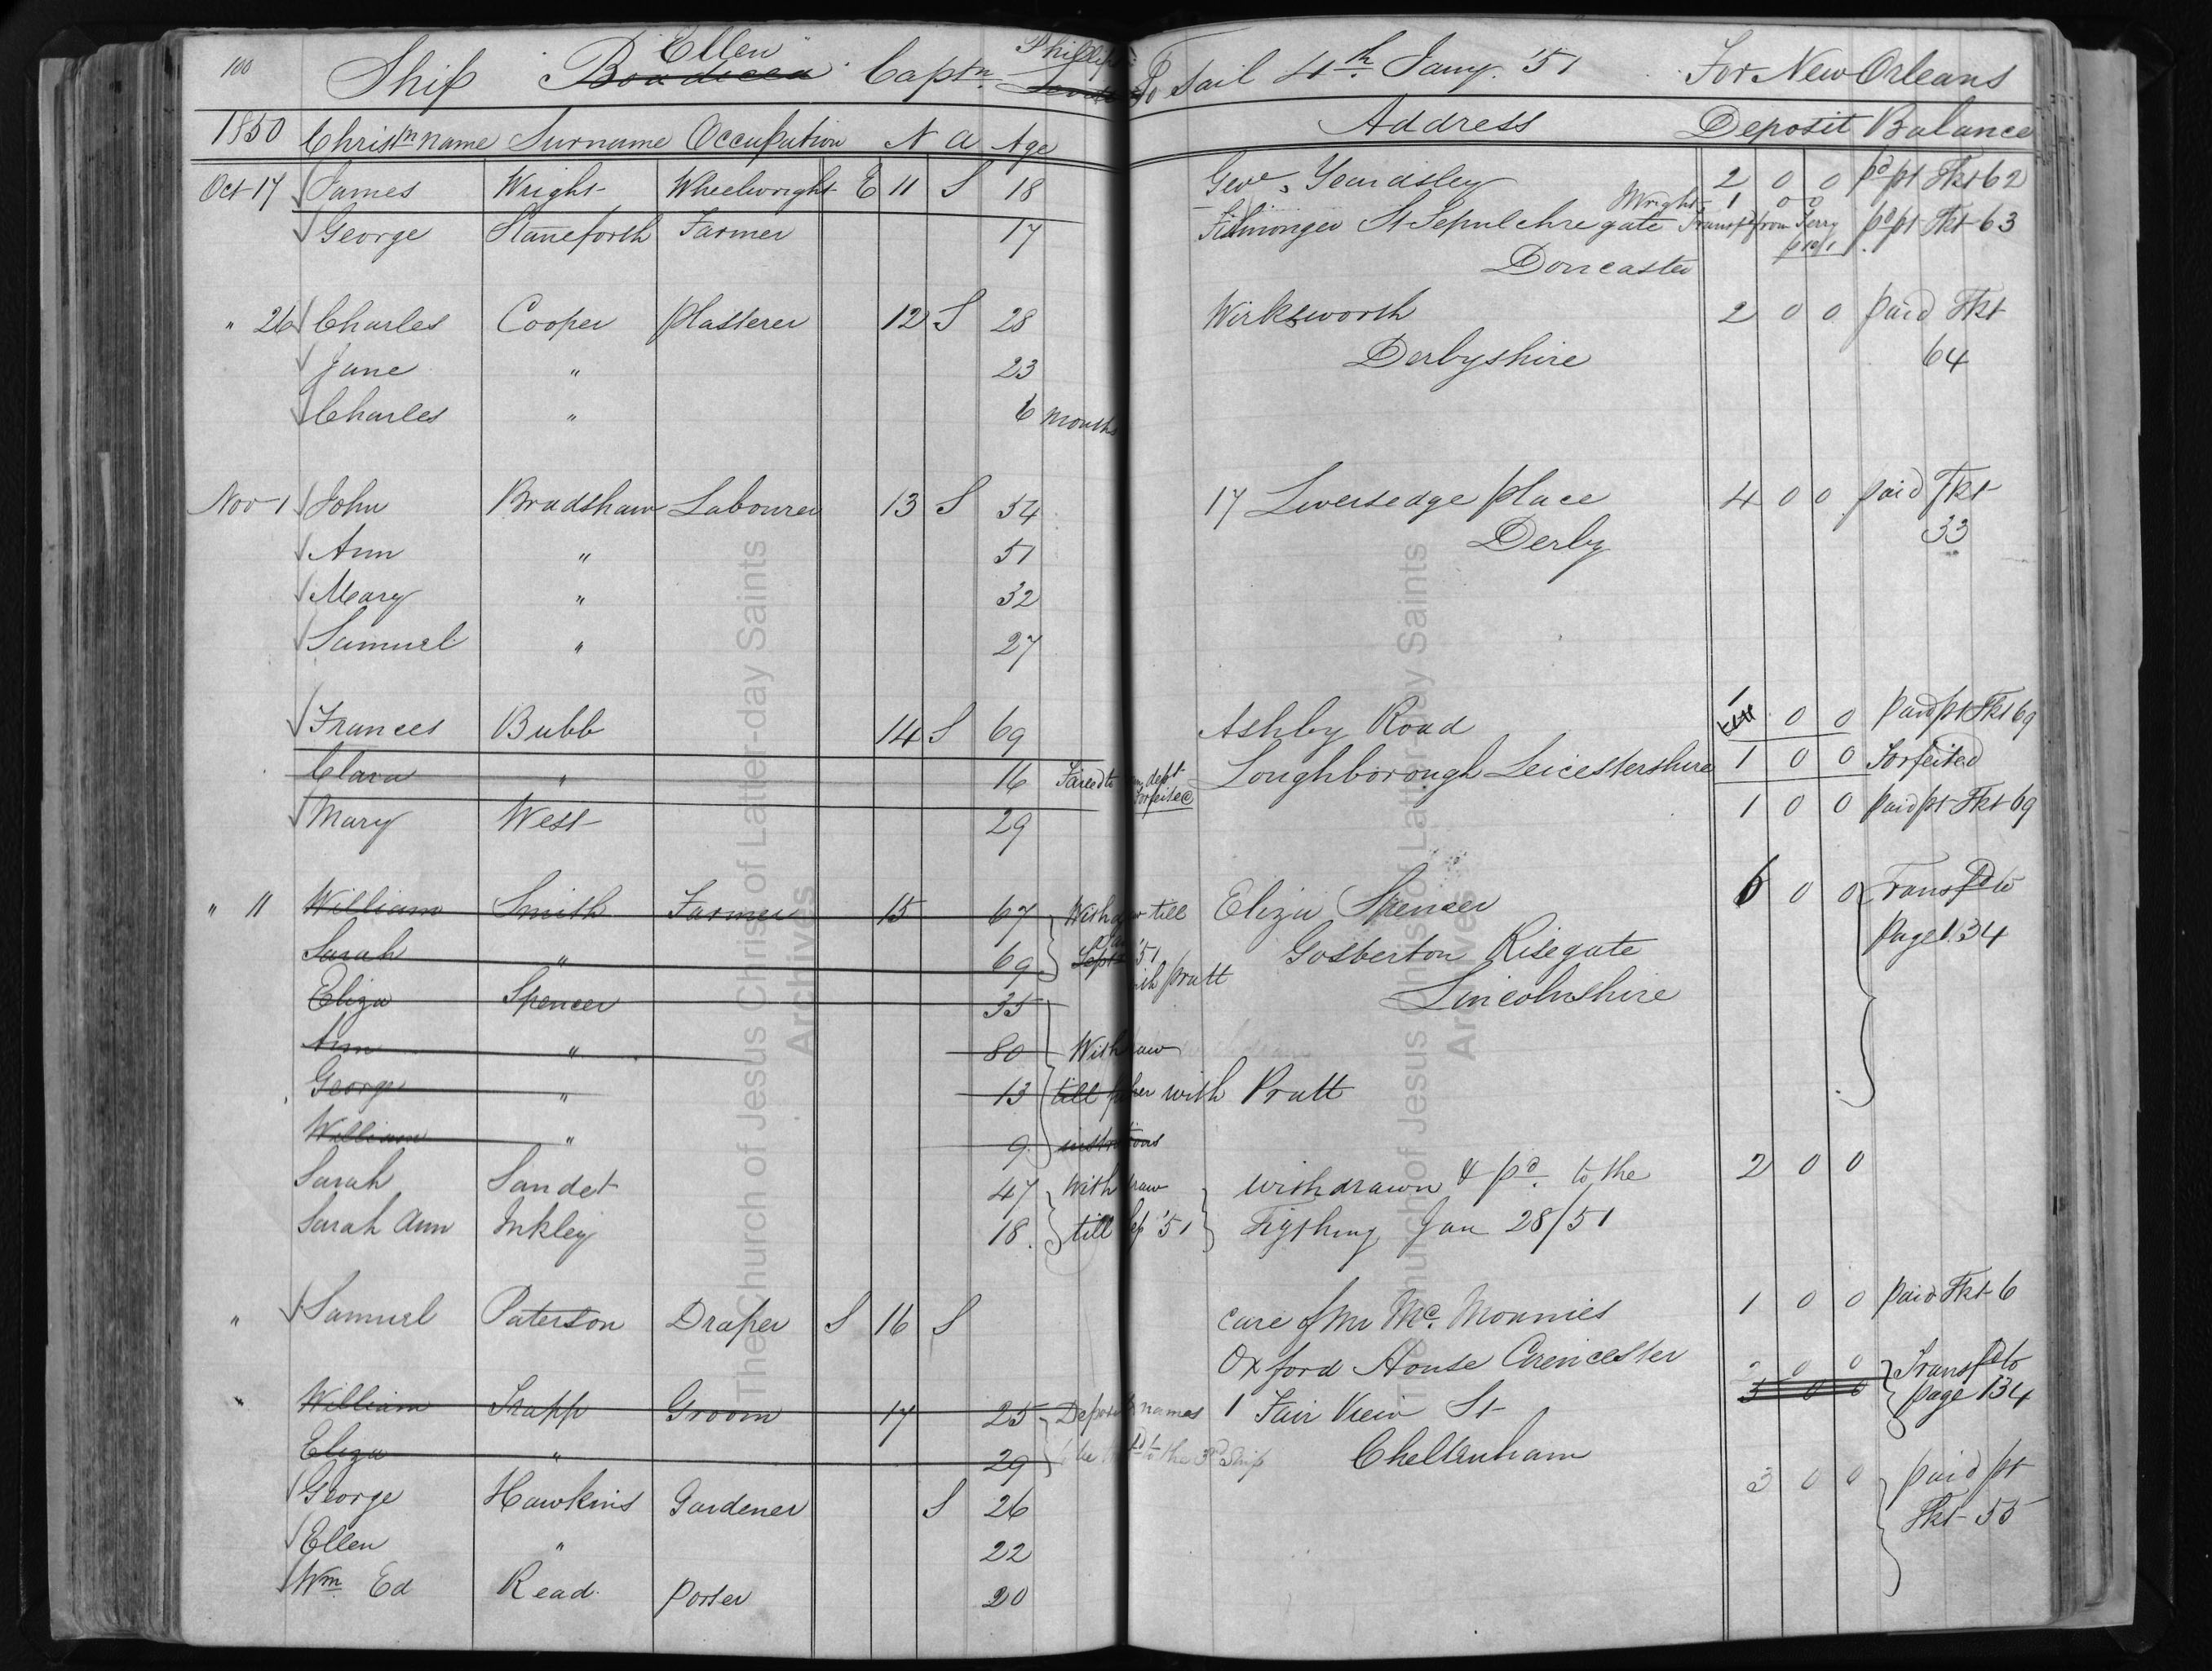 100
Ship Boadicea Ellen Captn Phillips To Sail 4th Jany. '51 For New Orleans
1850 Christn name Surname Occupation N A Age Address Deposit Balance
Oct 17 James Wright Wheelwright E 11 S 18 Geoe. Yeardsley 2 0 0 pd pt Tkt 62
Wright 1 0 0
George Staneforth Farmer 17 St Sepulchre gate Transfd from Ferry pd pt Tkt 63
Doncaster
" 26 Charles Cooper Plasterer 12 S 28 Wirksworth 2 0 0 paid Tkt
Jane " 23 Derbyshire 64
Charles " 6 months
Nov 1 John Bradshaw Labourer 13 S 54 17 Liversedge place 4 0 0 paid Tkt
Ann " 51 Derby 33
Mary " 32
Samuel " 27
Frances Bubb 14 S 69 Ashby Road 1 0 0 paid pt Tkt 69
Clara " 16 Failed to dept Forfeited Loughborough Leicestershire 1 0 0 Forfeited
Mary West 29 1 0 0 paid pt Tkt 69
" 11 William Smith Farmer 15 67 Withdraw till Eliza Spencer 6 0 0 Transfd to
Sarah " 69 Sept '51 Gosberton Risegate Page 134
with pratt
Eliza Spencer 35 Lincolnshire
Ann " 80 Withdraw
George " 13 till further with Pratt
William " 9 instructions
Sarah Sandet 47 Withdraw withdrawn & pd. to the 2 0 0
Sarah Ann Inkley 18 till Sep '51 Jan 28/51
" Samuel Paterson Draper S 16 S care of Mr Mc. Monnies 1 0 0 paid Tkt 6
Oxford House Cirencester
" William Trapp Groom 17 25 Deposit & names 1 Fair View St 5 0 0 Transfd to page 134
Eliza " 29 to be to the 3rd Ship Cheltenham
George Hawkins Gardener S 26 3 0 0 paid pt
Ellen " 22 Tkt 55
Wm Ed Read Porter 20
The Church of Jesus Christ of Latter-day Saints
Archives
The Church of Jesus Christ of Latter-day Saints
Archives